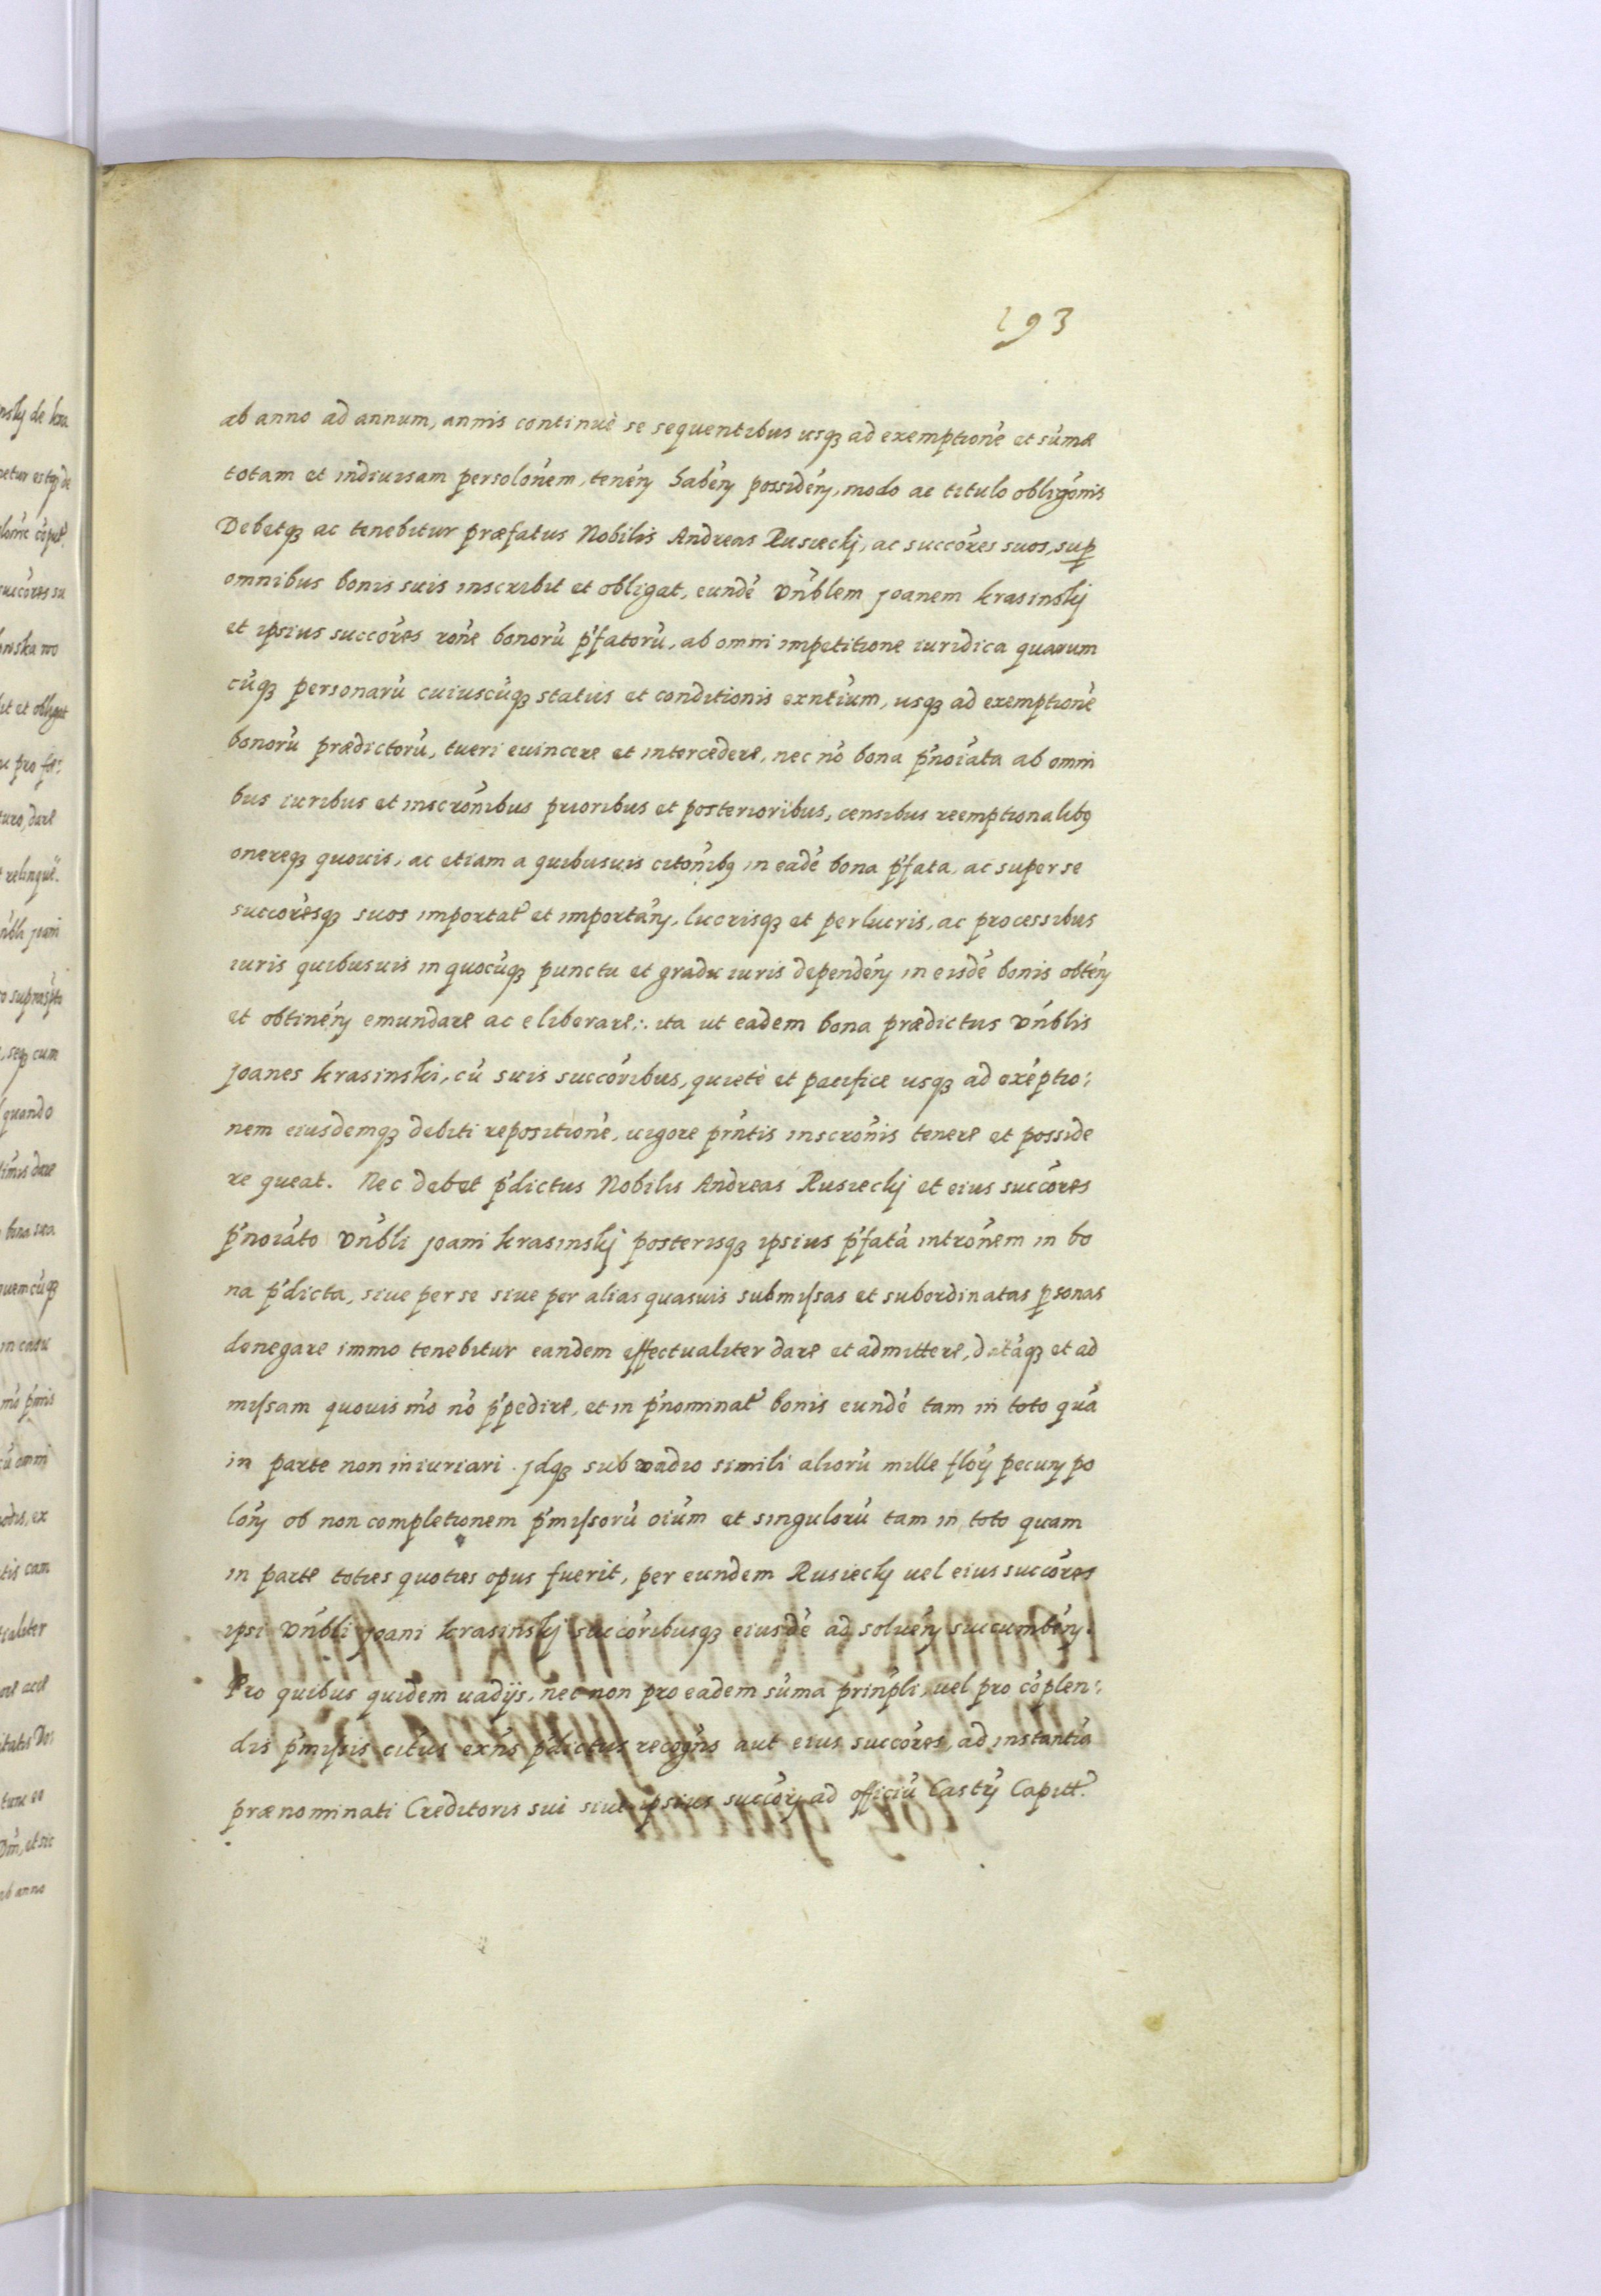 193
ab anno ad annum, annis continuè se sequentibus usqꝫ ad exemptionē et sūmæ
totam et indiuisam persolōnem, tenēn̄ habēn̄ possidēn̄, modo ac titulo obligōnis
Debetqꝫ ac tenebitur præfatus Nobilis Andreas Rusieckj, ac succōres suos, suꝑ
omnibus bonis suis inscribit et obligat, eundē Vn̄blem Joanem Krasinskj
et ipsius succōres rōne bonorū p̄fatorū, ab omni impetitione iuridica quarum
cūqꝫ personarū cuiuscūqꝫ status et conditionis exn̄tium, usqꝫ ad exemptionē
bonorū prædictorū, tueri euincere et intercedere, nec nō bona p̄noīata ab omni
bus iuribus et inscrōnibus prioribus et posterioribus, censibus reemptionalibꝫ
onereqꝫ quouis, ac etiam a quibusuis citōnibꝫ in eadē bona p̄fata, ac super se
succōresqꝫ suos importat̄ et importān̄, lucrisqꝫ et perlucris, ac processibus
iuris quibusuis in quocūqꝫ punctu et gradu iuris dependēn̄ in eisdē bonis obtēn̄
et obtinēn̄ emundare ac eliberare: ita ut eadem bona prædictus Vn̄blis
Joanes Krasinski, cū suis succōribus, quietè et pacifice usqꝫ ad exēptio:
nem eiusdemqꝫ debiti repositionē, uigore pn̄tis inscrōnis tenere et posside
re queat. Nec debet p̄dictus Nobilis Andreas Rusieckj et eius succōres
p̄noīato Vn̄bli Joani Krasinskj posterisqꝫ ipsius p̄fatā intrōnem in bo
na p̄dicta, siue per se siue per alias quasuis submiſsas et subordinatas ꝑsonas
denegare immo tenebitur eandem effectualiter dare et admittere, datāqꝫ et ad
miſsam quouis mō nō p̄pedire, et in p̄nominat̄ bonis eundē tam in toto quā
in parte non iniuriari. Jdqꝫ sub vadio simili aliorū mille flon̄ pecun̄ po
lōn̄ ob non completionem p̄miſsorū oīum et singulorū tam in toto quam
in parte toties quoties opus fuerit, per eundem Rusieckj uel eius succōres
ipsi Vn̄bli Joani Krasinskj succōribusqꝫ eiusdē ad soluēn̄ succumbēn̄.
Pro quibus quidem uadijs, nec non pro eadem sūma prinp̄li, uel pro cōplen:
dis p̄miſsis citus exn̄s p̄dictus recogn̄s aut eius succōres, ad instantiā
prænominati Creditoris sui siue ipsius succōr̄ ad officiū Castr̄ Capitt̄